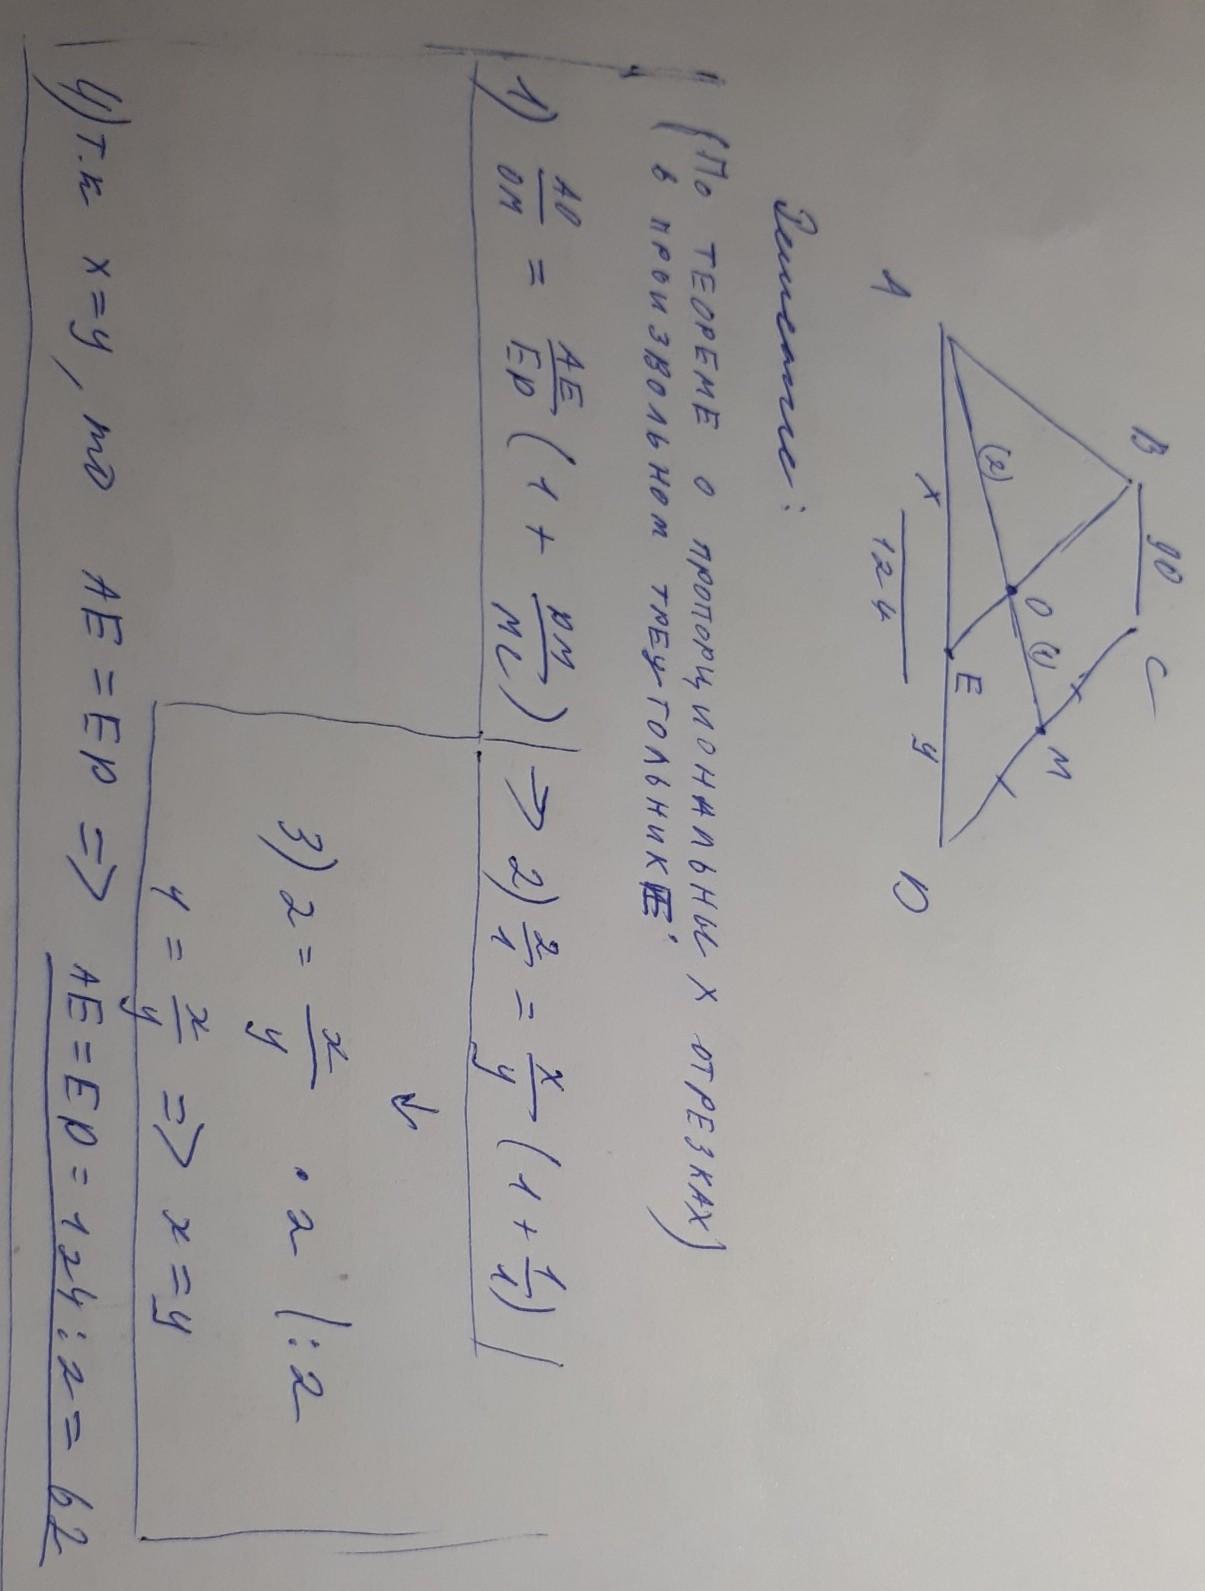 B 90 C
(2) O (1) M
A x E y D
124
Решение:
(По ТЕОРЕМЕ О ПРОПОРЦИОНАЛЬНЫХ ОТРЕЗКАХ)
в ПРОИЗВОЛЬНОМ ТРЕУГОЛЬНИКЕ:
1) AO/OM = AE/ED (1 + DM/MC) => 2) 2/1 = x/y (1 + 1/1)
↓
3) 2 = x/y · 2 |:2
1 = x/y => x = y
4) т.к x = y, то AE = ED => AE = ED = 124 : 2 = 62